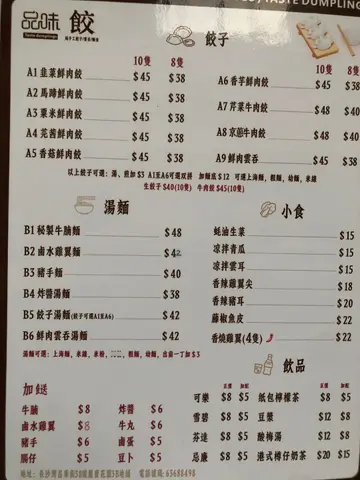 品味 餃
Taste dumplings
TASTE DUMPLING
餃子
10隻 8隻
A1 韭菜鮮肉餃 $45 $38
A2 馬蹄鮮肉餃 $45 $38
A3 粟米鮮肉餃 $45 $38
A4 芫茜鮮肉餃 $45 $38
A5 香菇鮮肉餃 $45 $38
10隻 8隻
A6 香芋鮮肉餃 $45 $38
A7 芹菜牛肉餃 $48 $40
A8 京蔥牛肉餃 $48 $40
A9 鮮肉雲吞 $45 $38
以上餃子可選：湯、煎加$3 A1至A6可選双拼 加麵底$12 可選上海麵，粗麵，幼麵，米線
生餃子$40(10隻) 牛肉餃$45(10隻)
湯麵
B1 秘製牛腩麵 $48
B2 鹵水雞翼麵 $42
B3 豬手麵 $40
B4 炸醬湯麵 $38
B5 餃子湯麵(餃子可選A1至A6) $42
B6 鮮肉雲吞湯麵 $42
湯麵可選：上海麵，米線，米粉，粗麵，幼麵，出前一丁加$3
小食
蚝油生菜 $15
涼拌青瓜 $15
涼拌雲耳 $15
香辣雞翼尖 $18
香辣豬耳 $20
藤椒魚皮 $22
香燒雞翼(4隻) $22
加餸
牛腩 $8
鹵水雞翼 $8
豬手 $6
腸仔 $5
炸醬 $6
牛丸 $6
鹵蛋 $5
豆卜 $5
飲品
可樂 $8 $5
雪碧 $8 $5
芬達 $8 $5
忌廉 $8 $5
紙包檸檬茶 $8 $5
豆漿 $12 $8
酸梅湯 $12 $8
港式檸仔奶茶 $20 $15
電話樓號：63688498